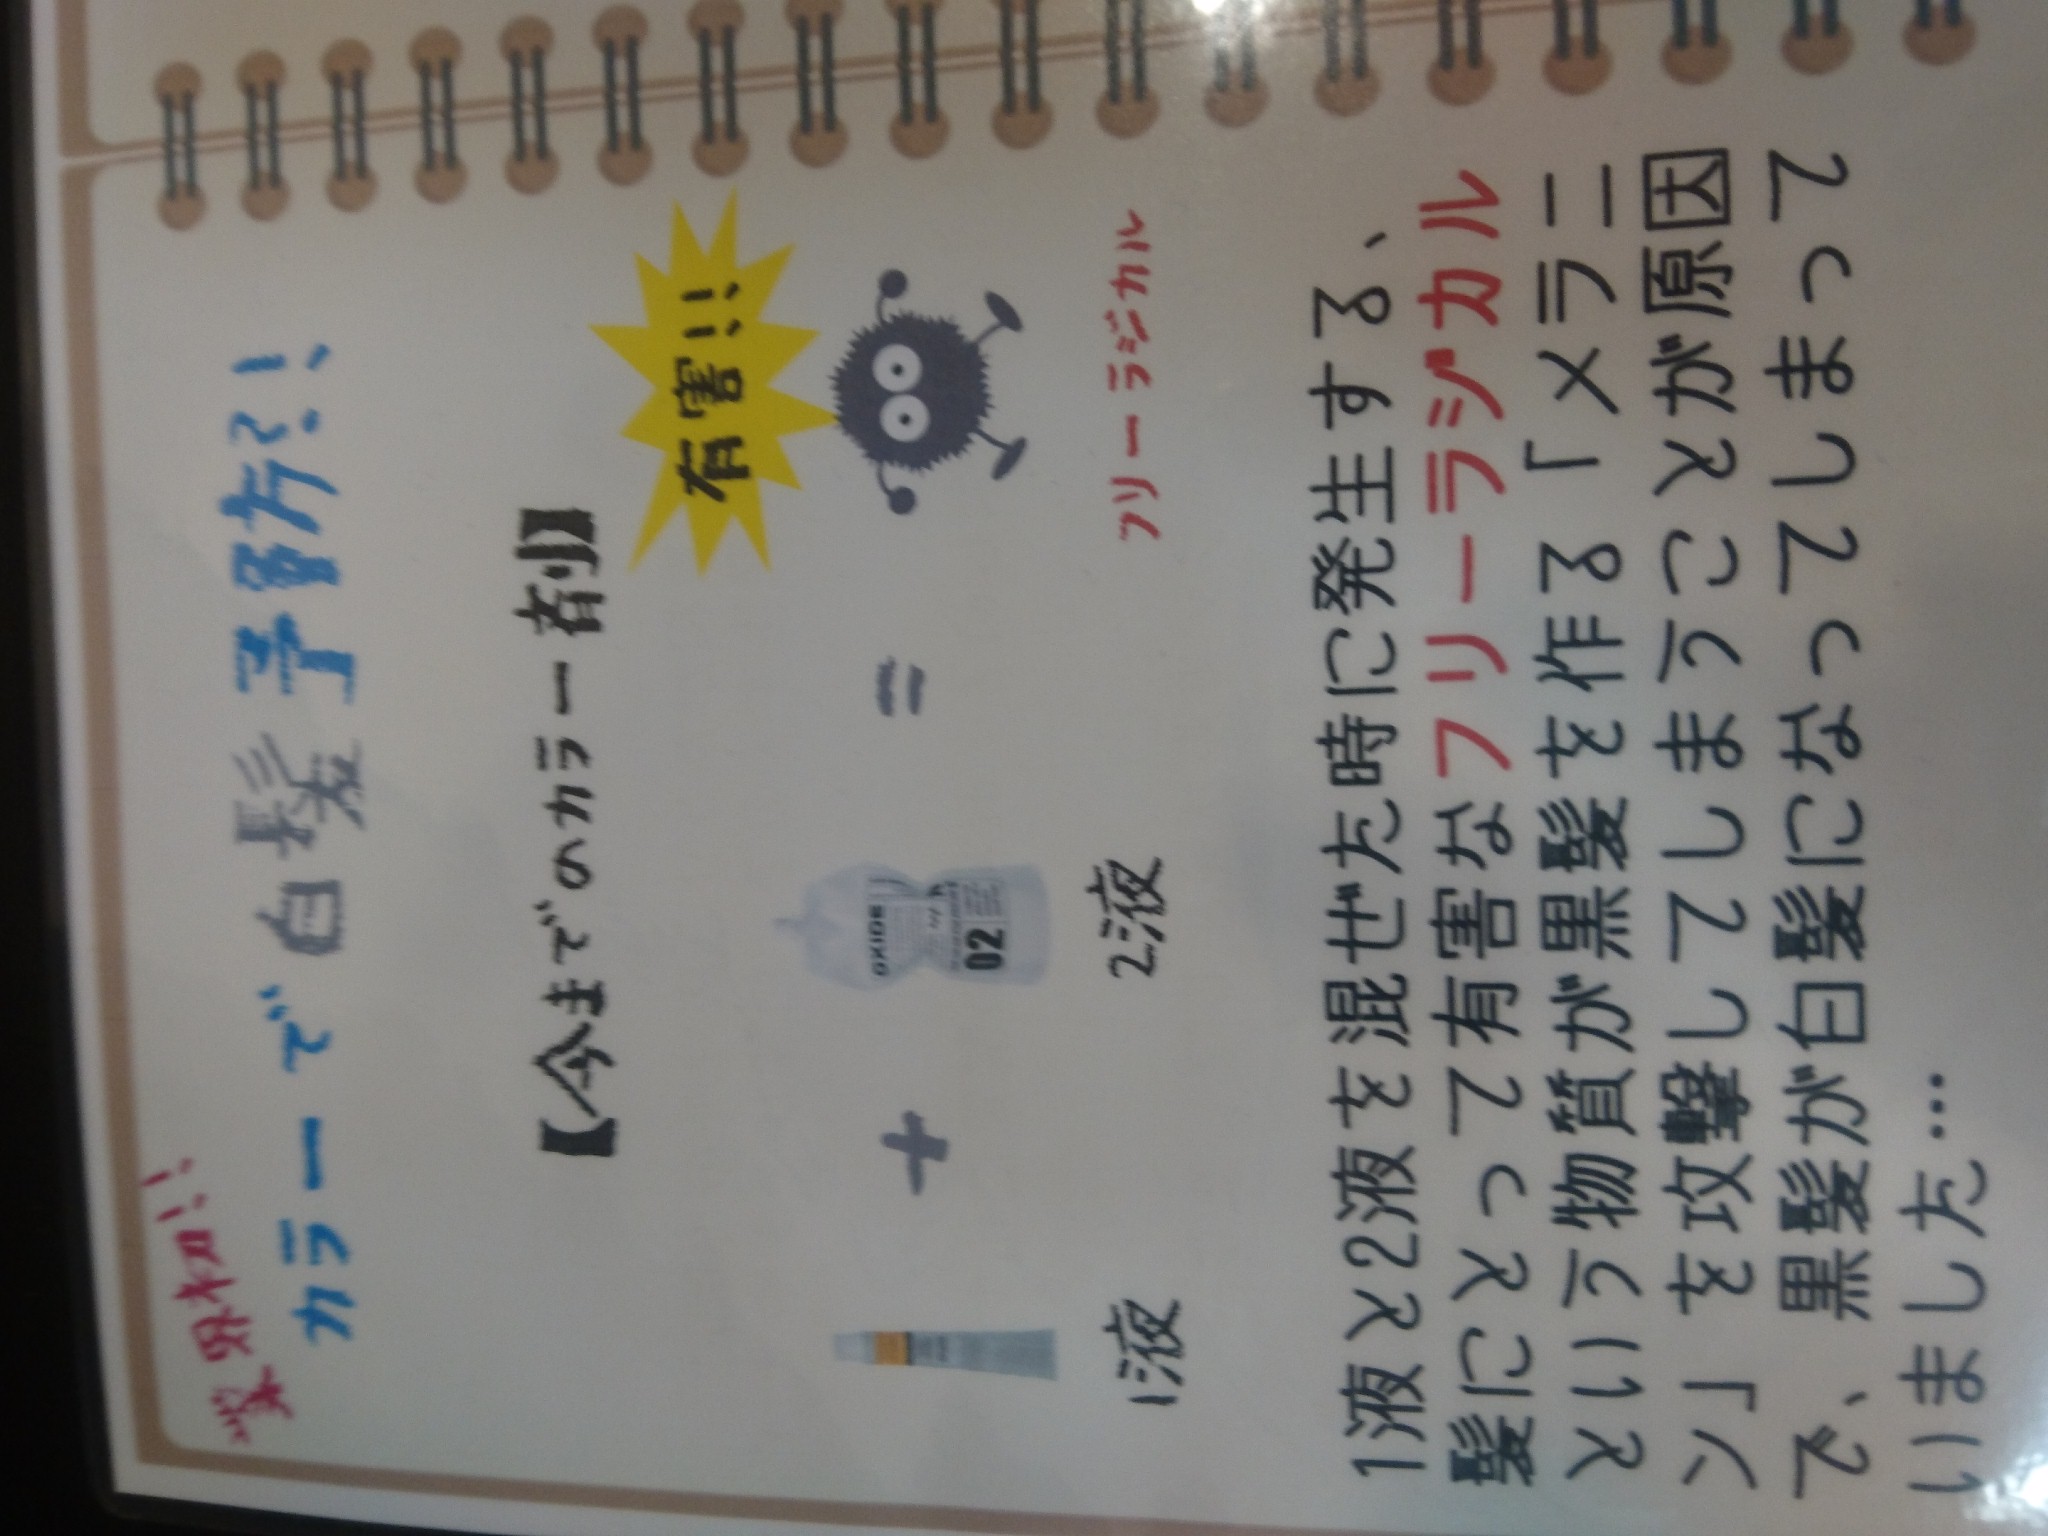 業界初!!
カラーで白髪予防?!
【今までのカラー剤】
有害!!
OXIDE
02
+
=
1液
2液
フリーラジカル
1液と2液を混ぜた時に発生する、
髪にとって有害なフリーラジカル
という物質が黒髪を作る「メラニ
ン」を攻撃してしまうことが原因
で、黒髪が白髪になってしまって
いました…